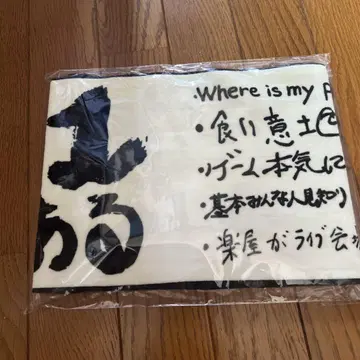 土
ある
・Where is my P
・食い意土也
・ゲーム本気に
・基本みんな人見知り
・楽屋がライブ会